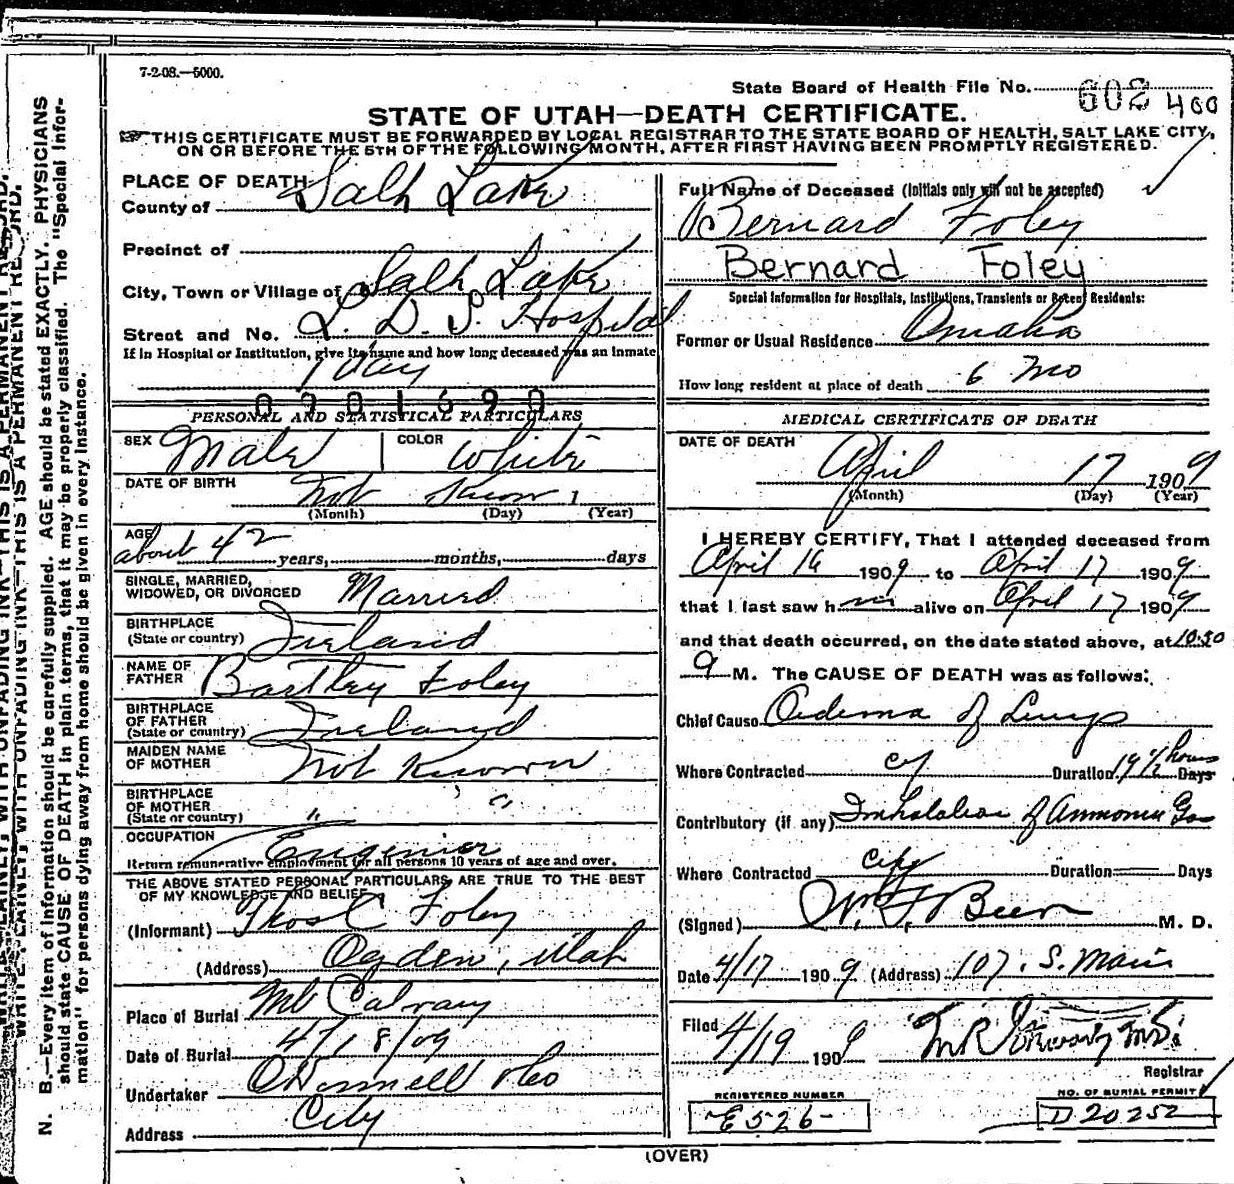 7-2-08.—5000.
State Board of Health File No. 602 400
STATE OF UTAH—DEATH CERTIFICATE.
THIS CERTIFICATE MUST BE FORWARDED BY LOCAL REGISTRAR TO THE STATE BOARD OF HEALTH, SALT LAKE CITY,
ON OR BEFORE THE 5TH OF THE FOLLOWING MONTH, AFTER FIRST HAVING BEEN PROMPTLY REGISTERED.
PLACE OF DEATH
County of Salt Lake
Precinct of
City, Town or Village of Salt Lake
Street and No. L. D. S. Hospital
If in Hospital or Institution, give its name and how long deceased was an inmate
1 Day
0901690
PERSONAL AND STATISTICAL PARTICULARS
SEX Male COLOR White
DATE OF BIRTH Not Know 1
(Month) (Day) (Year)
AGE about 42 years, months, days
SINGLE, MARRIED,
WIDOWED, OR DIVORCED Married
BIRTHPLACE
(State or country) Ireland
NAME OF
FATHER Bartley Foley
BIRTHPLACE
OF FATHER
(State or country) Ireland
MAIDEN NAME
OF MOTHER Not Known
BIRTHPLACE
OF MOTHER
(State or country) " "
OCCUPATION Engenier
Return remunerative employment for all persons 10 years of age and over.
THE ABOVE STATED PERSONAL PARTICULARS ARE TRUE TO THE BEST
OF MY KNOWLEDGE AND BELIEF
(Informant) Thos C Foley
(Address) Ogden, Utah
Place of Burial Mt Calvary
Date of Burial 4/18/09
Undertaker O'Donnell & Co
City
Address
Full Name of Deceased (Initials only will not be accepted)
Bernard Foley
Bernard Foley
Special Information for Hospitals, Institutions, Transients or Recent Residents:
Former or Usual Residence Omaha
How long resident at place of death 6 mo
MEDICAL CERTIFICATE OF DEATH
DATE OF DEATH
April 17 1909
(Month) (Day) (Year)
I HEREBY CERTIFY, That I attended deceased from
April 16 1909 to April 17 1909
that I last saw h im alive on April 17 1909
and that death occurred, on the date stated above, at 10:30
a M. The CAUSE OF DEATH was as follows:
Chief Cause Oedema of Lungs
Where Contracted City Duration 19 1/2 hours Days
Contributory (if any) Inhalation of Ammonia Gas
Where Contracted City Duration Days
(Signed) M. D.
Date 4/17 1909 (Address) 107. S. Main
Filed 4/19 1909
Registrar
REGISTERED NUMBER
E526
NO. OF BURIAL PERMIT
D20252
(OVER)
N. B.—Every item of information should be carefully supplied. AGE should be stated EXACTLY. PHYSICIANS
should state CAUSE OF DEATH in plain terms, that it may be properly classified. The "Special Infor-
mation" for persons dying away from home should be given in every instance.